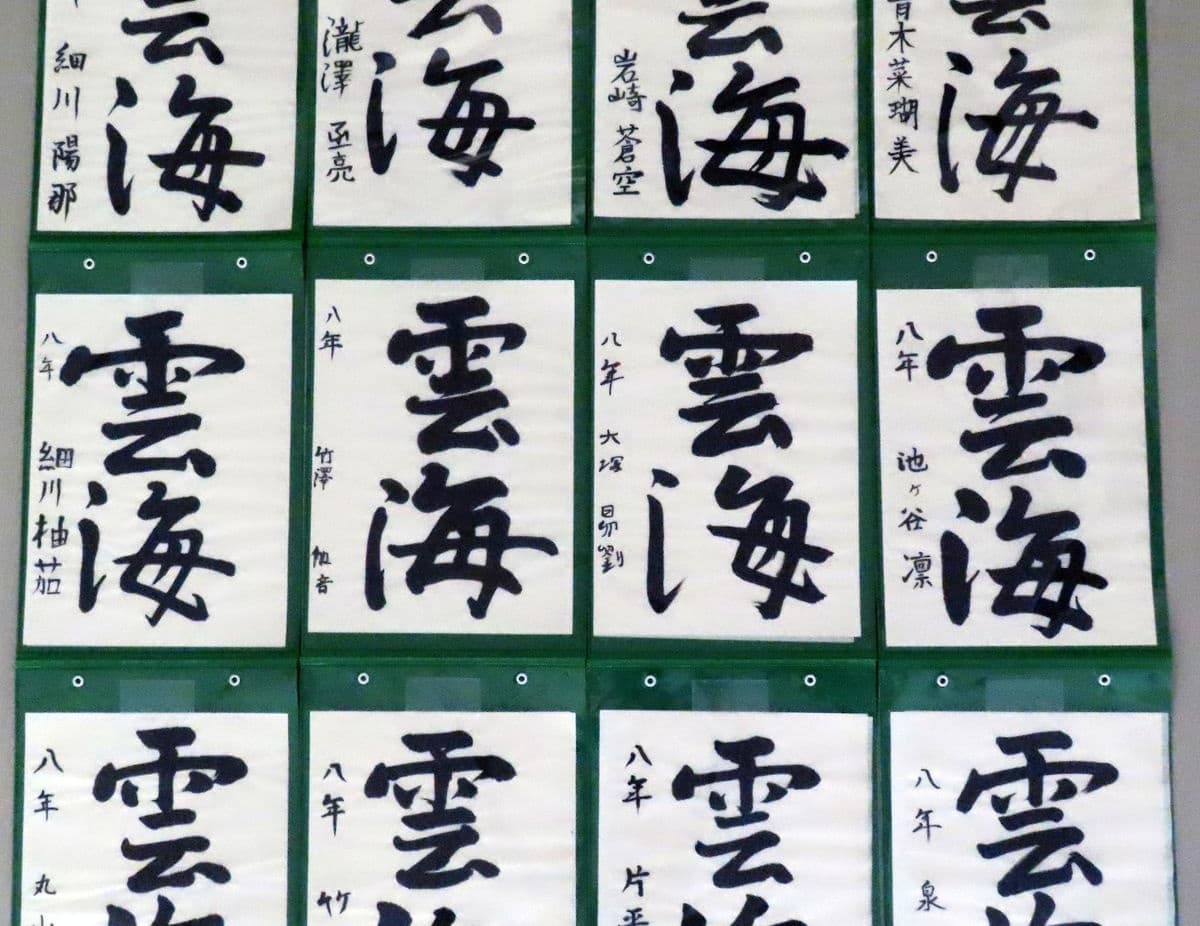 雲海
細川 陽那
雲海
瀧澤 丞亮
雲海
岩崎 蒼空
雲海
青木 菜瑚美
雲海
八年 細川 柚茄
雲海
八年 竹澤
雲海
八年 大塚 昴劉
雲海
八年 池ヶ谷 凛
雲海
八年 丸山
雲海
八年 竹
雲海
八年 片平
雲海
八年 泉